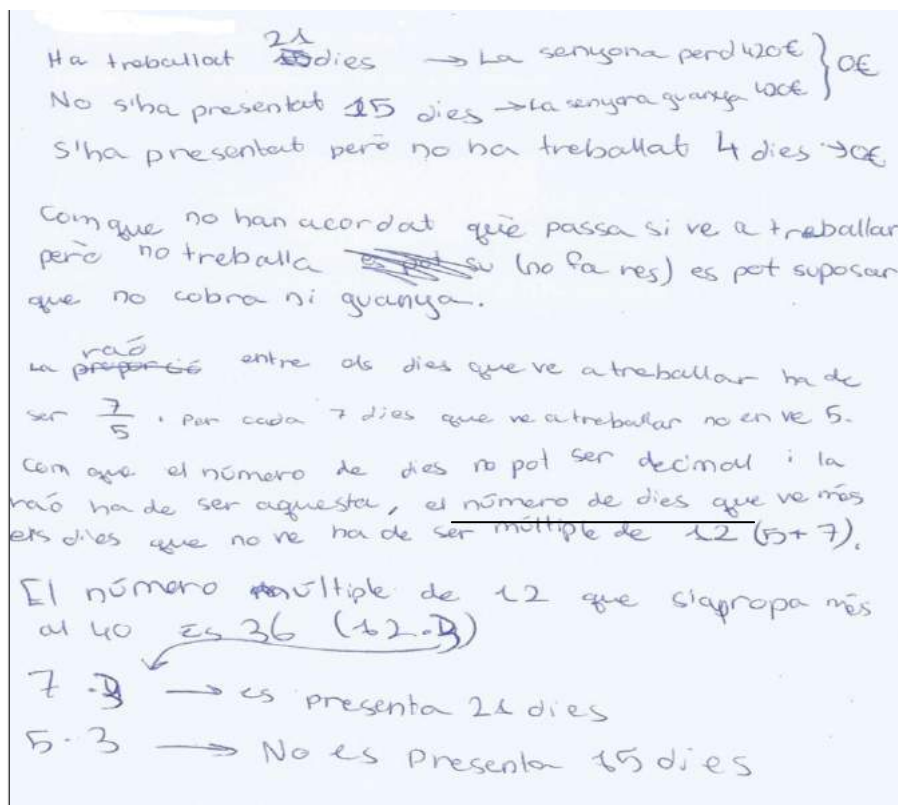 Ha treballat 21 dies → La senyora perd 420€ } 0€
No s'ha presentat 15 dies → La senyora guanya 400€
S'ha presentat però no ha treballat 4 dies → 0€
Com que no han acordat què passa si ve a treballar
però no treballa (no fa res) es pot suposar
que no cobra ni guanya.
La raó entre els dies que ve a treballar ha de
ser 7/5. Per cada 7 dies que ve a treballar no en ve 5.
Com que el número de dies no pot ser decimal i la
raó ha de ser aquesta, el número de dies que ve més
els dies que no ve ha de ser múltiple de 12 (5+7).
El número múltiple de 12 que s'apropa més
al 40 és 36 (12·3)
7·3 → es presenta 21 dies
5·3 → No es presenta 15 dies